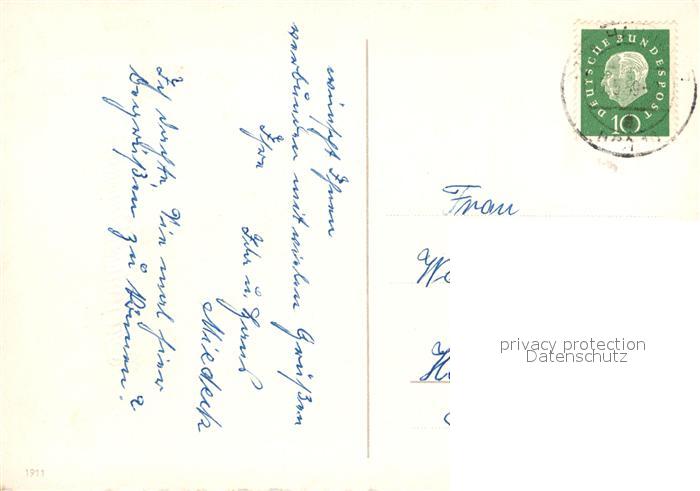 wünscht Ihnen
verbunden mit vielen Grüßen
Ihre
Ilse u. Hans
Miedeck
Ich dachte, Sie mal hier
begrüßen zu können?
Frau
DEUTSCHE BUNDESPOST
10
1911
privacy protection
Datenschutz